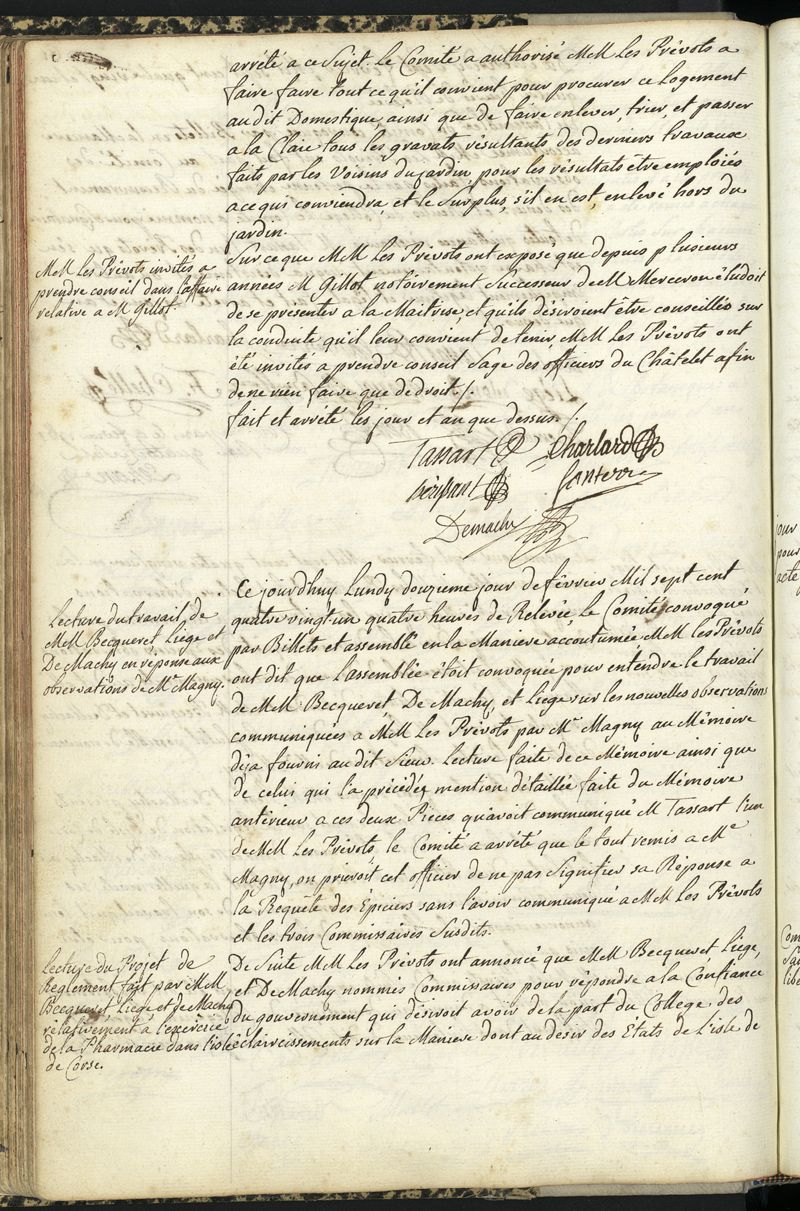 arrêté a ce Sujet. Le Comité a authorisé MM Les Prévots a
faire faire tout ce qu'il convient pour procurer ce Logement
audit Domestique, ainsi que de faire enlever, trier, et passer
a la Claie tous les gravats résultants des derniers travaux
faits par les Voisins du jardin pour les résultats être emploiés
a ce qui conviendra, et le Surplus, s'il en est, enlevé hors du
jardin.
MM Les Prévots invités a
prendre conseil dans l'affaire
relative a M Gillot.
Sur ce que MM Les Prévots ont exposé que depuis plusieurs
années M Gillot notoirement Successeur de M Merceron éludoit
de se présenter a la Maitrise, et qu'ils désiroient être conseillés sur
la conduite qu'il leur convient de tenir, MM Les Prévots ont
été invités a prendre conseil Sage des officiers du Châtelet afin
de ne rien faire que de droit./.
fait et arrêté les jour et an que dessus./.
Tassart Charlard
Santerre
Demachy
Lecture du travail de
MM Becqueret, Liege et
De Machy en réponse aux
observations de Me Magny.
Ce jourd'huy Lundy douzieme jour de février Mil sept cent
quatre vingt-un quatre heures de Relevée, le Comité convoqué
par Billets et assemblé en la Maniere accoutumée MM les Prévots
ont dit que l'assemblée étoit convoquée pour entendre le travail
de MM Becqueret De Machy, et Liege sur les nouvelles observations
communiquées a MM Les Prévots par Me Magny au Mémoire
déja fourni audit Sieur. Lecture faite de ce Mémoire ainsi que
de celui qui l'a précédé, mention détaillée faite du Mémoire
antérieur a ces deux Pieces qu'avoit communiqué M Tassart l'un
de MM Les Prévots, le Comité a arrêté que le tout remis a Me
Magny, on prieroit cet officier de ne pas Signifier sa Réponse a
la Requête des Epiciers sans l'avoir communiqué a MM Les Prévots
et les trois Commissaires Susdits.
Lecture du Projet de
Reglement fait par MM
Becqueret, Liege et de Machy
relativement a l'exercice
de la Pharmacie dans l'isle
de Corse.
De Suite MM Les Prévots ont annoncé que MM Becqueret, Liege,
et De Machy nommés Commissaires pour répondre a la Confiance
du gouvernement qui désiroit avoir de la part du College des
éclaircissements sur la Maniere dont au desir des Etats de L'isle de